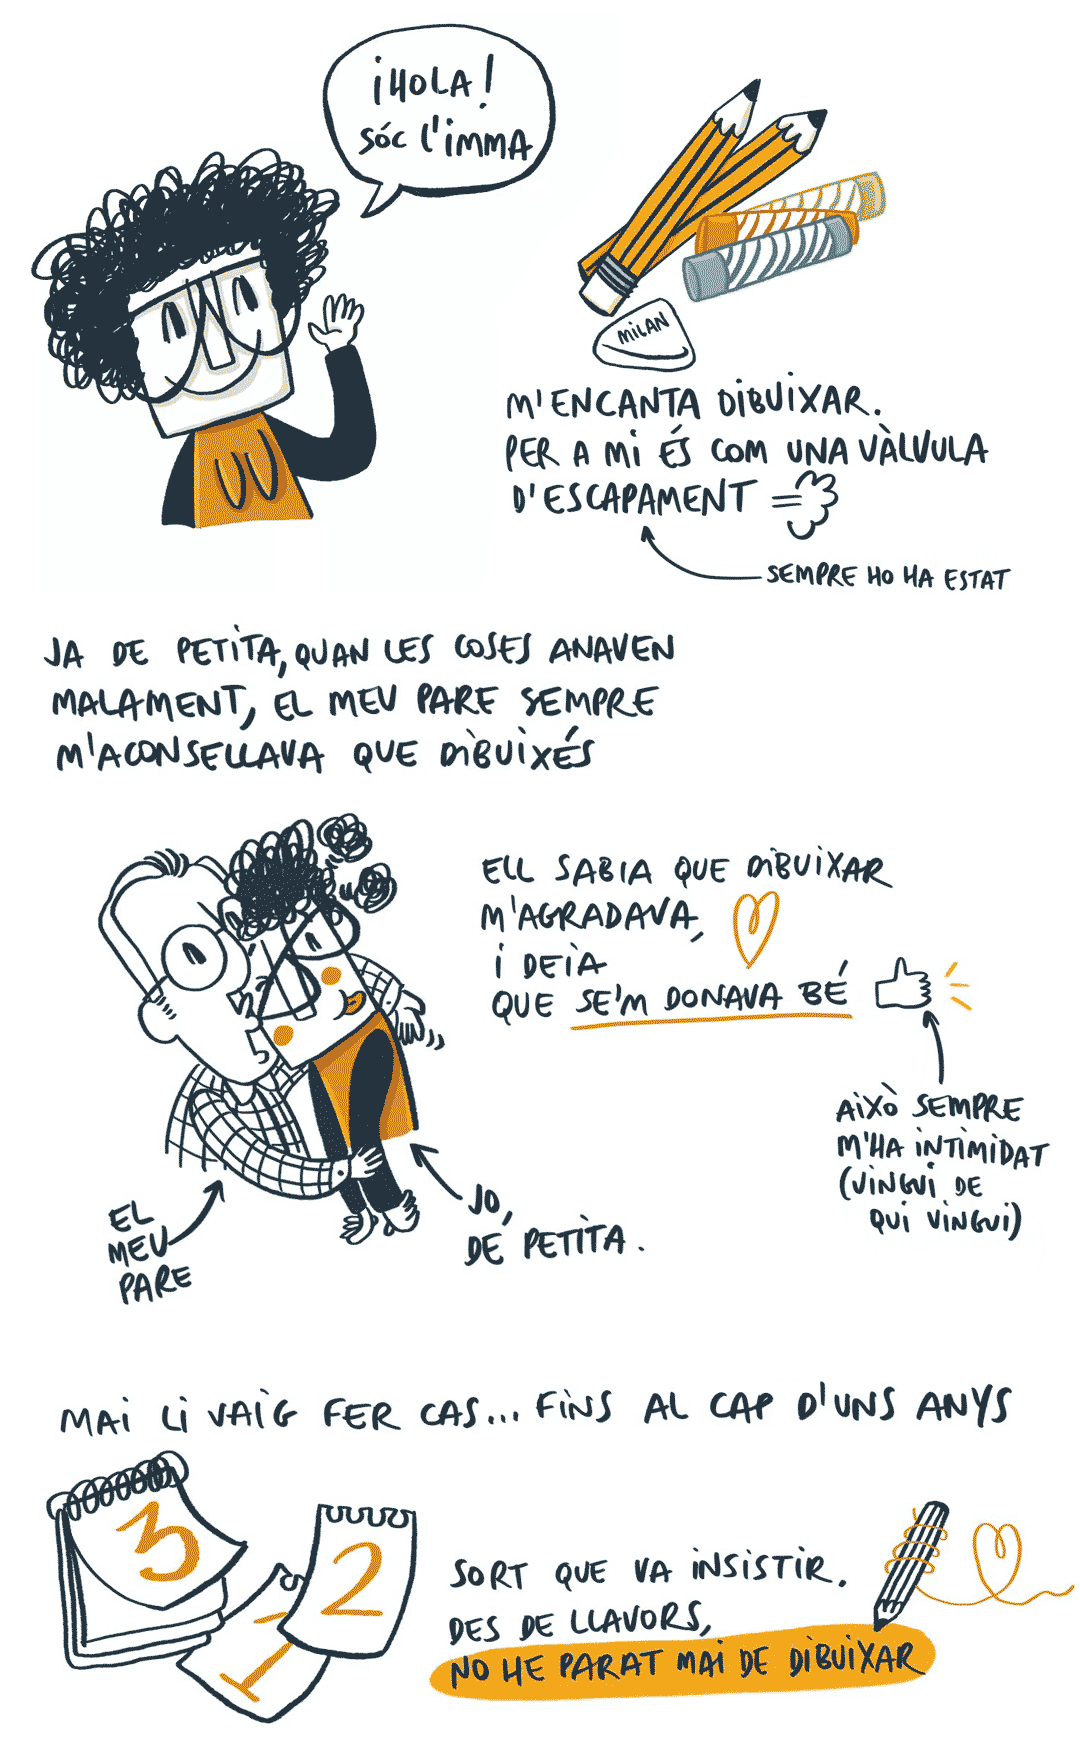 ¡HOLA!
SÓC L'IMMA
MILAN
M'ENCANTA DIBUIXAR.
PER A MI ÉS COM UNA VÀLVULA
D'ESCAPAMENT
SEMPRE HO HA ESTAT
JA DE PETITA, QUAN LES COSES ANAVEN
MALAMENT, EL MEU PARE SEMPRE
M'ACONSELLAVA QUE DIBUIXÉS
ELL SABIA QUE DIBUIXAR
M'AGRADAVA,
I DEIA
QUE SE'M DONAVA BÉ
AIXÒ SEMPRE
M'HA INTIMIDAT
(VINGUI DE
QUI VINGUI)
EL
MEU
PARE
JO,
DE PETITA.
MAI LI VAIG FER CAS... FINS AL CAP D'UNS ANYS
3
1
2
SORT QUE VA INSISTIR.
DES DE LLAVORS,
NO HE PARAT MAI DE DIBUIXAR